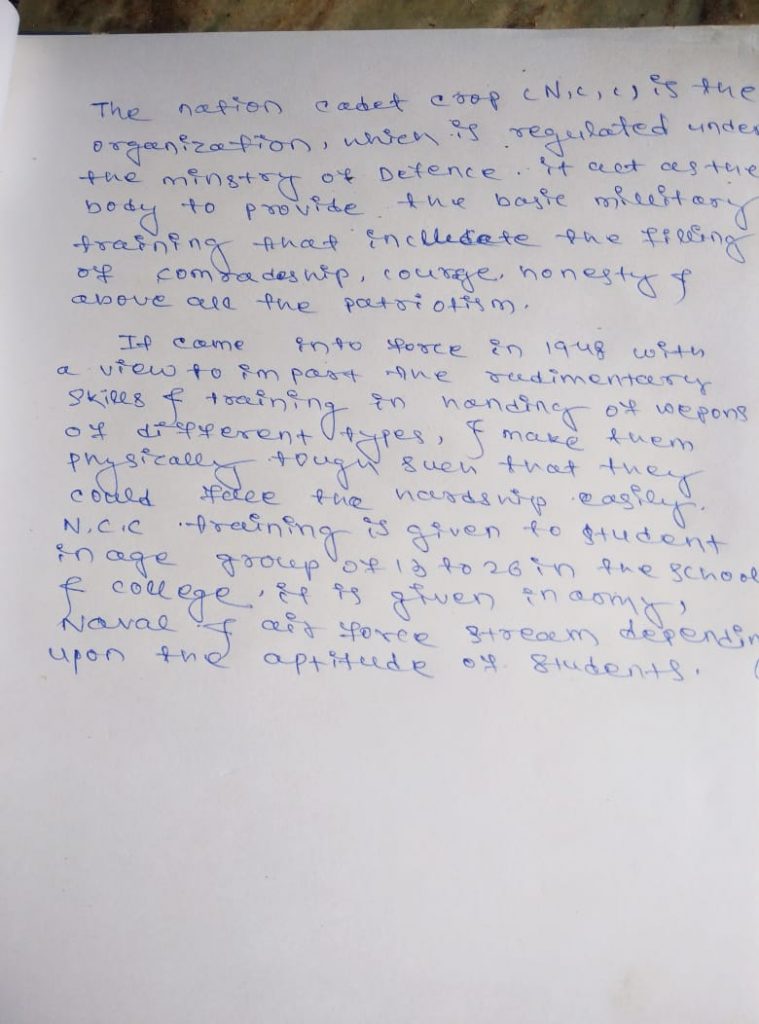 The nation cadet crop (N.C.C) is the
organization, which is regulated under
the minstry of Defence. it act as the
body to provide the basic millitary
training that include the filling
of comradeship, courge, honesty &
above all the patriotism.
It came into force in 1948 with
a view to impart the rudimentary
skills & training in handing of wepons
of different types, & make them
physically tough such that they
could face the hardship easily.
N.C.C training is given to student
in age group of 13 to 26 in the school
& college, it is given in army,
Naval & air force stream dependin
upon the aptitude of students.